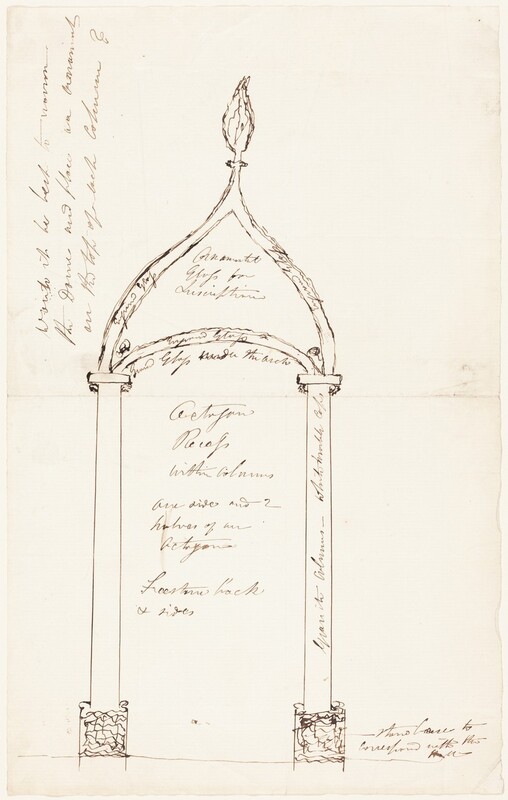 Would it be best to
the Dome and place an ornament
on the top of each Column &
Ornamented
Glass for
Inscription
Ground Glass
Ground Glass
Ground Glass under the arch
Octagon
Recess
within columns
one sides and 2
halves of an
octagon
Freestone back
& sides
Granite Columns — white marble Caps
stone base to
correspond with the